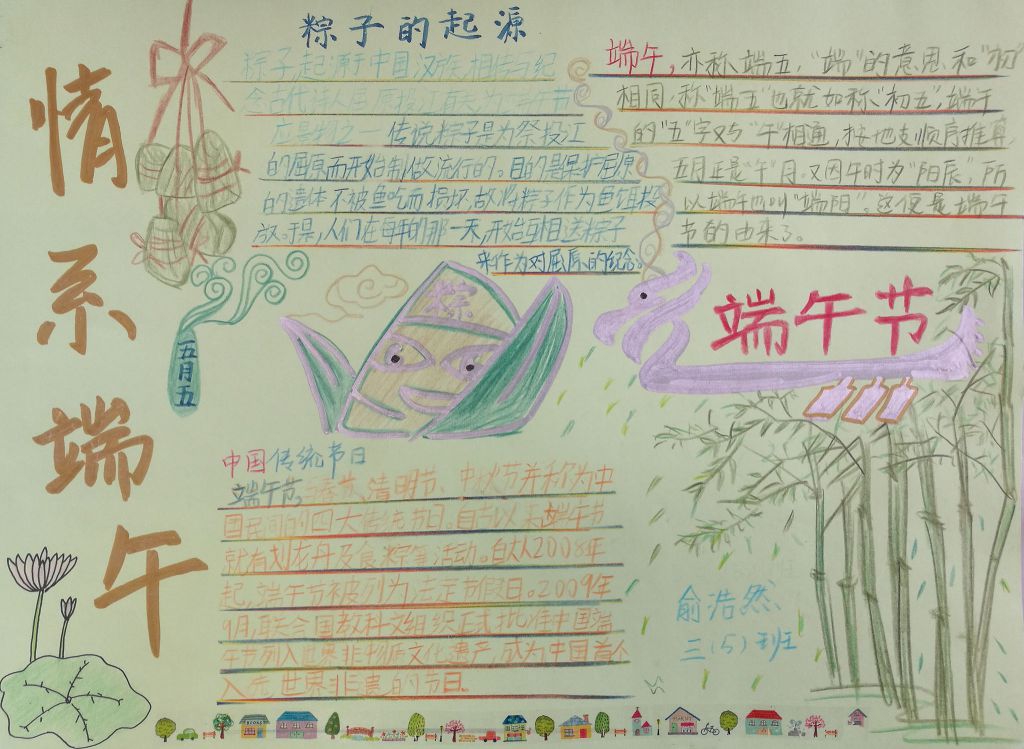 情系端午
粽子的起源
粽子,起源于中国汉族,相传与纪
念古代诗人屈原投江有关,为端午节
应是物之一 传说,粽子是为祭投江
的屈原而开始制做流行的。目的是保护屈原
的遗体不被鱼吃而损坏,故将粽子作为鱼饵投
放。于是,人们在每年的那一天,开始互相送粽子
来作为对屈原的纪念。
端午,亦称端五,“端”的意思和“初”
相同,称“端五”也就如称“初五”;端午
的“五”字又与“午”相通,按地支顺序推算,
五月正是“午”月。又因午时为“阳辰”,所
以端午也叫“端阳”。这便是端午
节的由来了。
五月五
粽
端午节
中国传统节日
端午节,春节、清明节、中秋节并称为中
国民间的四大传统节日。自古以来端午节
就有划龙舟及食粽等活动。自从2008年
起,端午节被列为法定节假日。2009年
9月,联合国教科文组织正式批准中国端
午节列入世界非物质文化遗产,成为中国首个
入选世界非遗的节日。
俞浩然
三(5)班